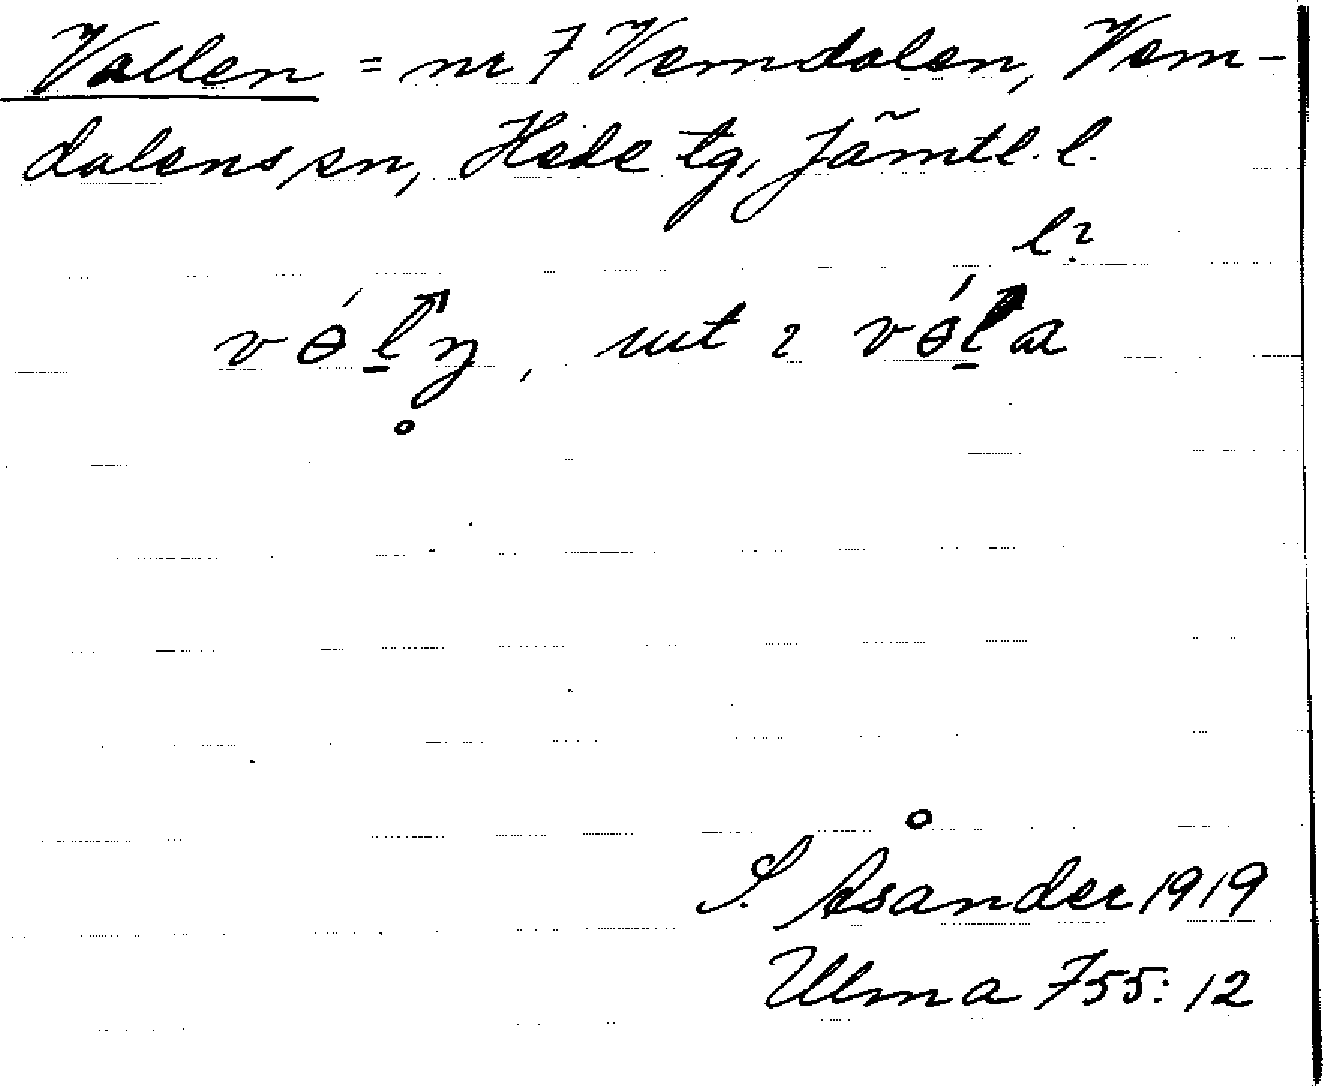 Vallen = nr 7 Vemdalen, Vem-
dalens sn, Hede tg, Jämtl. l.
l?
, ut i
S. Åsander 1919
Ulma 755:12